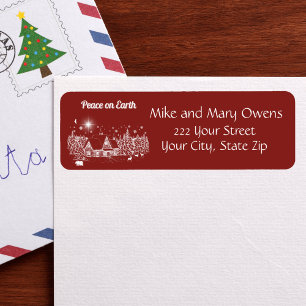 Peace on Earth
Mike and Mary Owens
222 Your Street
Your City, State Zip